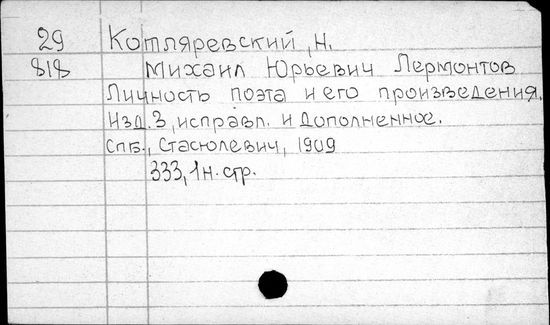 29 Котляревский, Н.
818 Михаил Юрьевич Лермонтов
Личность поэта и его произведения.
Изд. 3, исправл. и дополненное.
Спб., Стасюлевич, 1909
333, 1 н. стр.